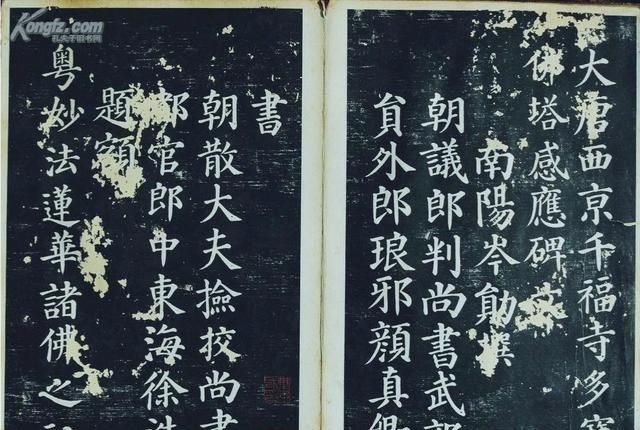 大唐西京千福寺多寶
佛塔感應碑文
南陽岑勛撰
朝議郎判尚書武部
員外郎琅邪顏真卿
書
朝散大夫撿挍尚書
都官郎中東海徐浩
題額
粵妙法蓮華諸佛之
Kongfz.com
孔夫子旧书网